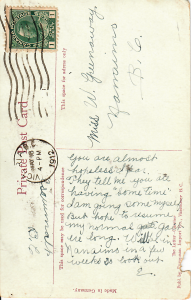 Miss W. Greenaway,
Nanaimo
B.C.
This space for address only
Private Post Card
4-PM
1912
This space may be used for correspondence
You are almost
hopeless I fear.
They tell me you are
having "some time"
I am going some myself
But hope to resume
my normal
ere long. Will
Nanaimo in a few
weeks so look out
Made in Germany.